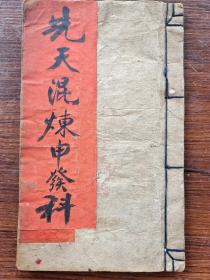 先天混煉申發科